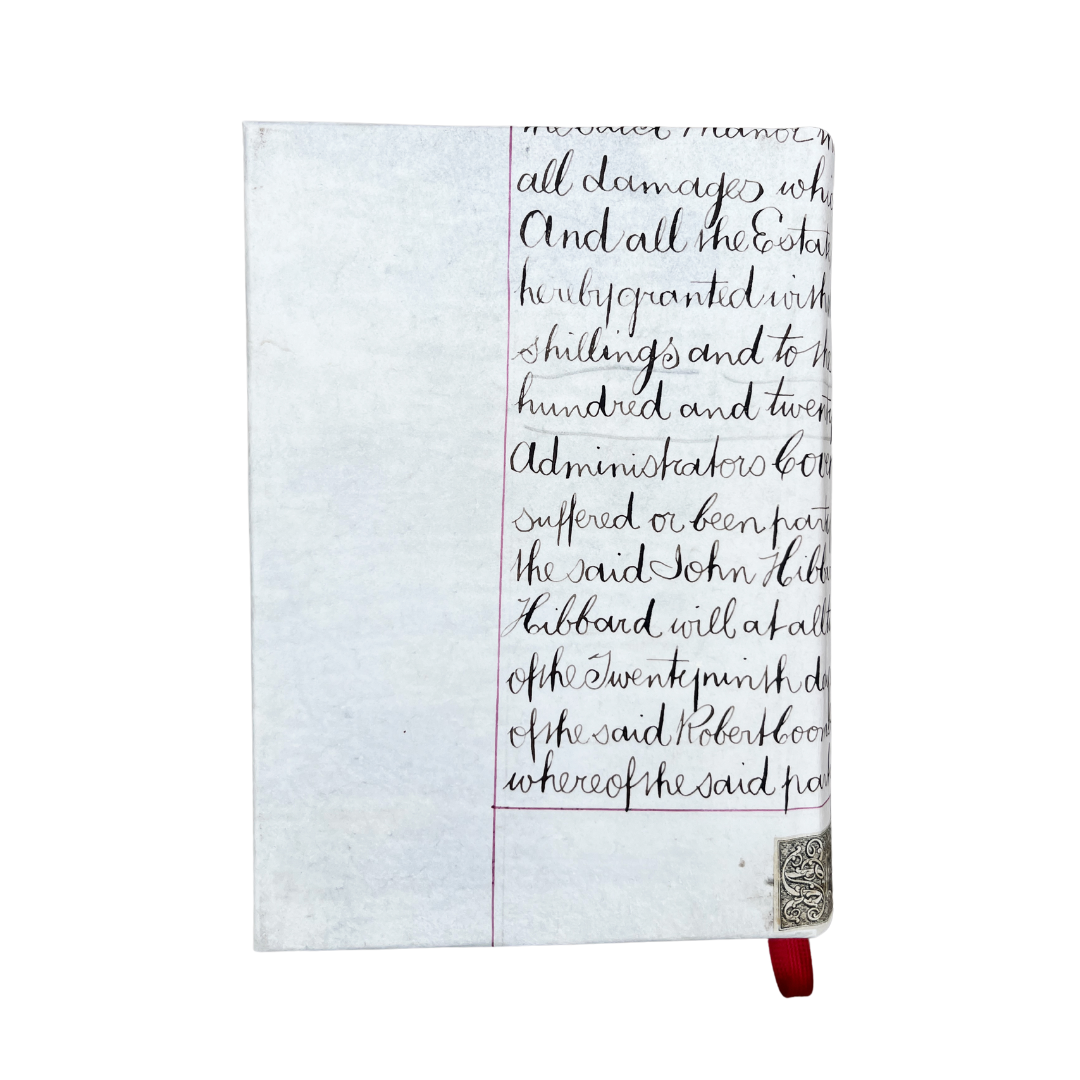 the said Manor
all damages
And all the Estat
hereby granted
shillings and to the
hundred and twenty
Administrators Cove
suffered or been part
the said John Hibb
Hibbard will at all t
of the Twentyninth da
of the said Robert Coom
whereof the said part